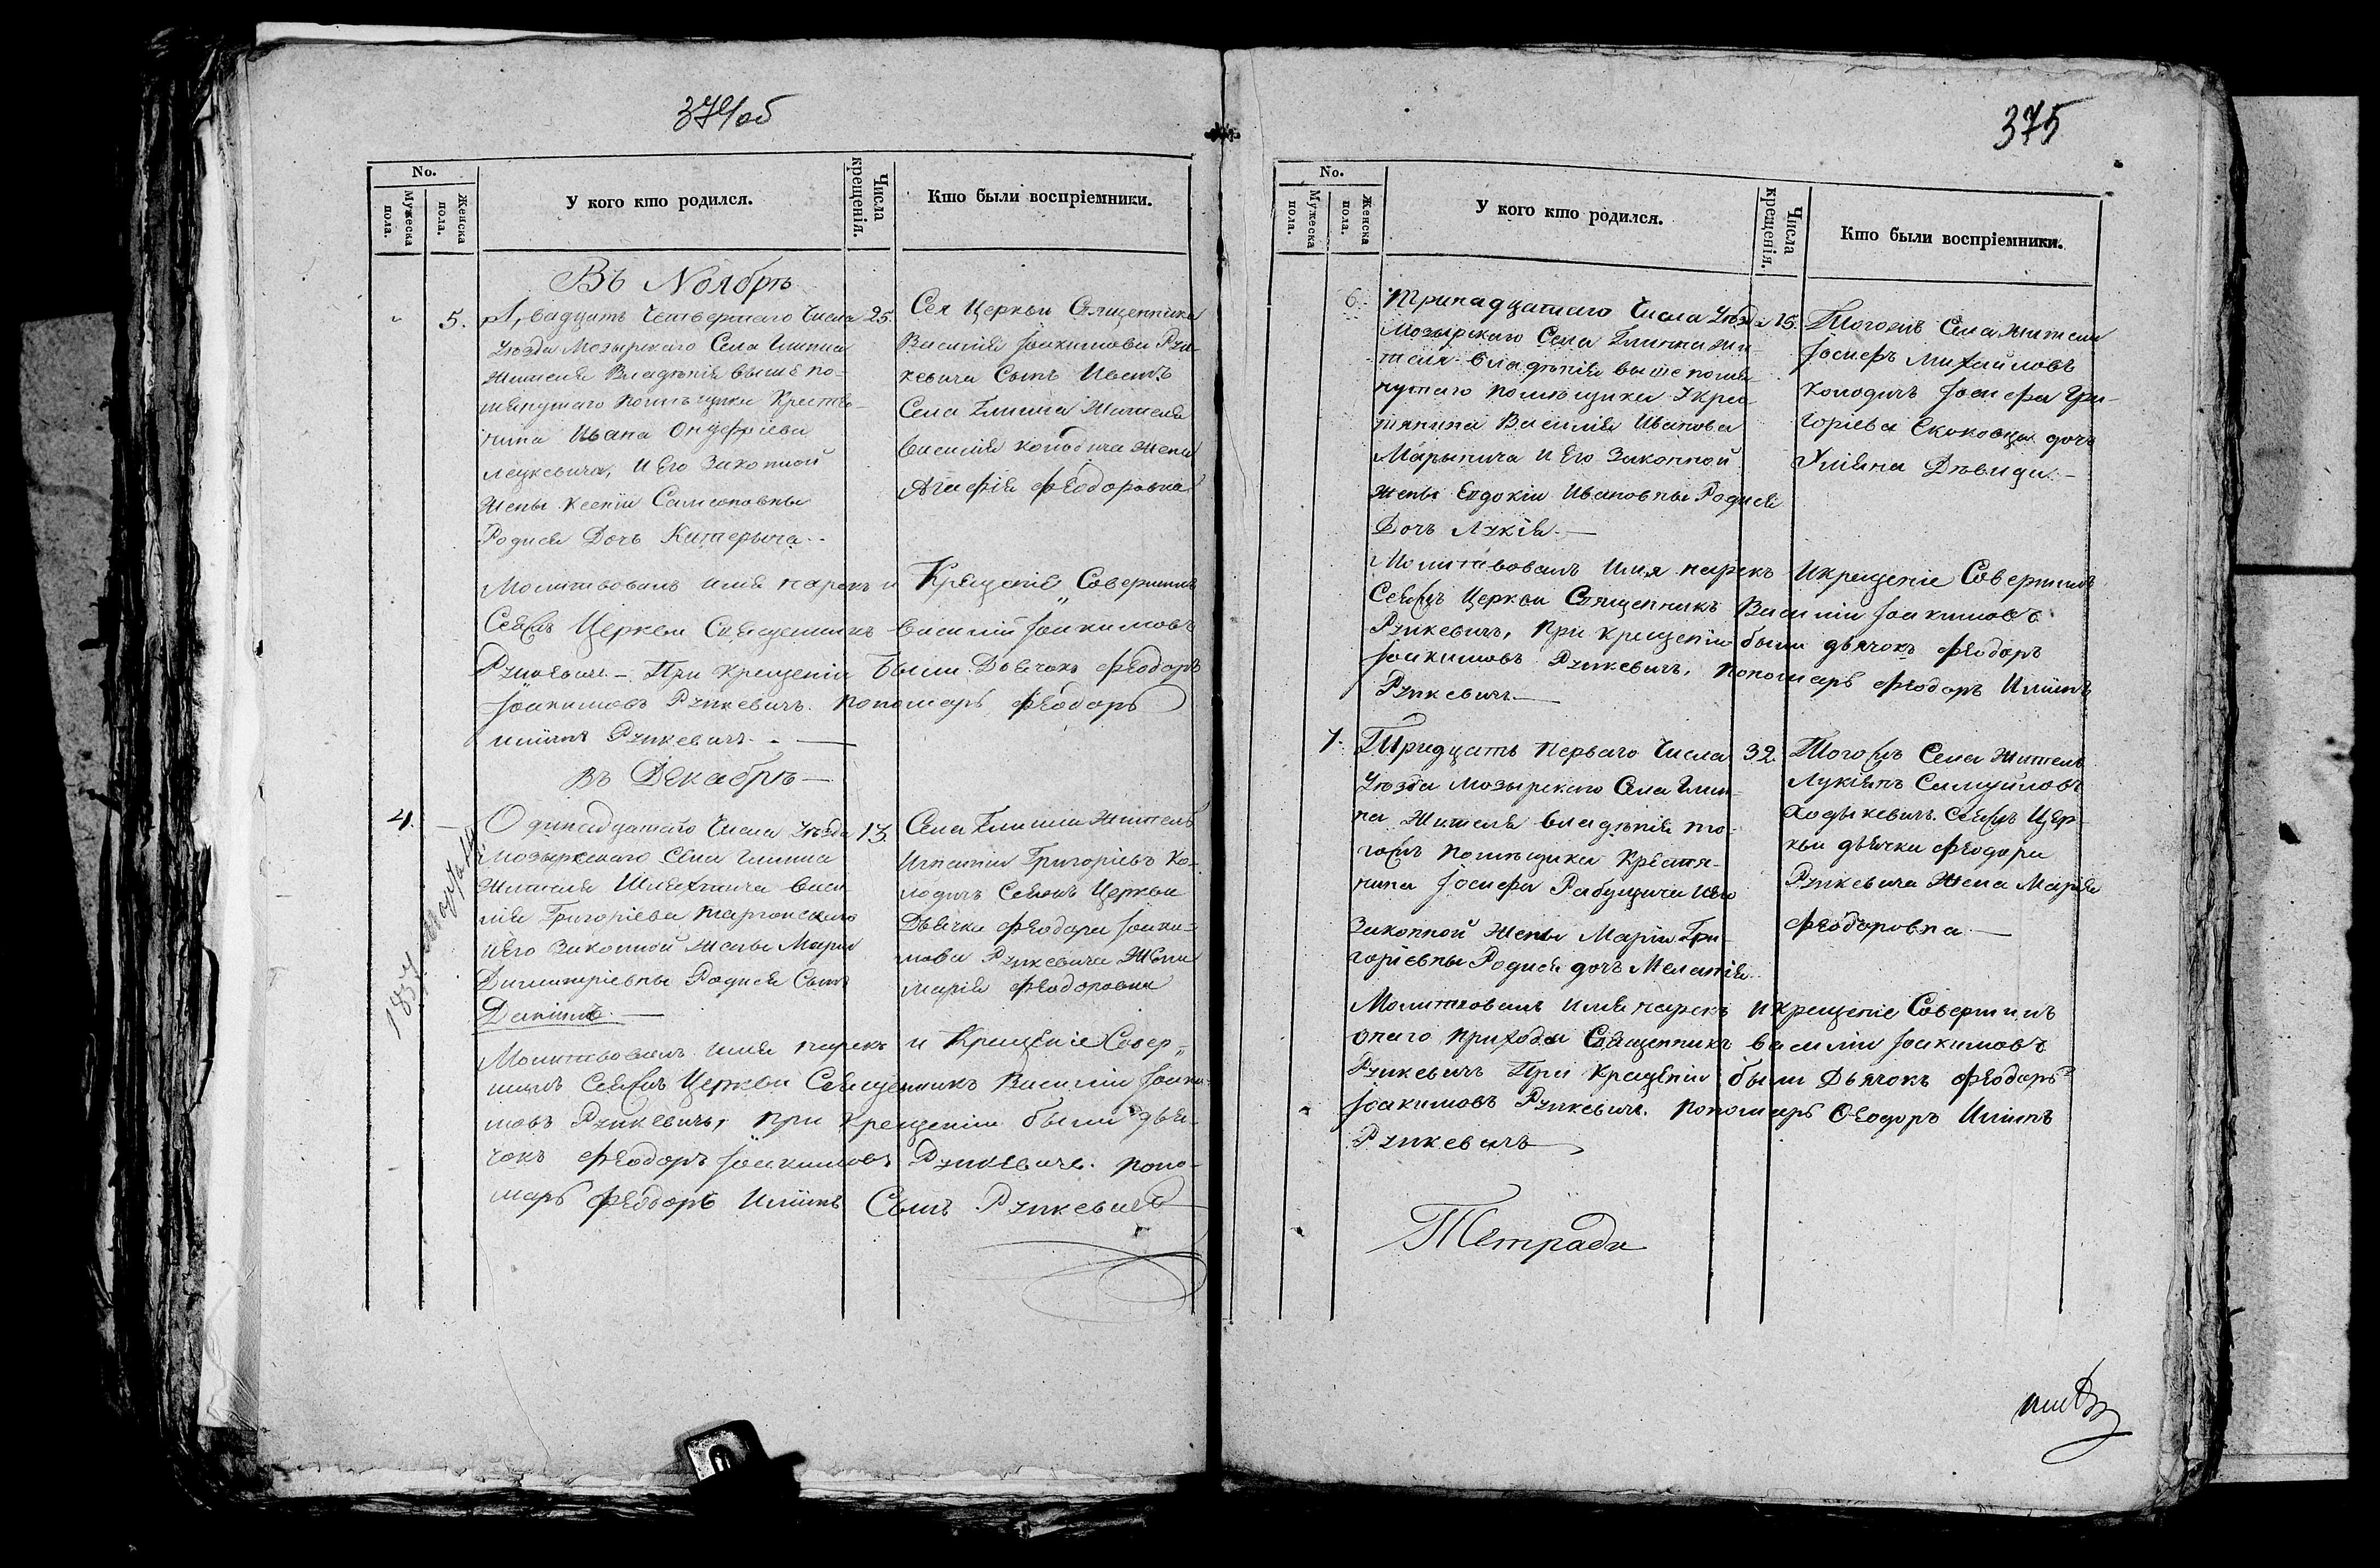 374об
No.
Мужеска пола.
Женска пола.
У кого кто родился.
Числа крещенія.
Кто были воспріемники.
Въ Ноябрѣ
5. Двадцать Четвертаго Числа 25.
Уѣзда Мозырскаго Села Глинна
Жителя Владѣнія выше по-
мянутаго помѣщика Крестья-
нина Ивана Онуфріева
и Его Законной
Жены Ксеніи Самсоновны
Родися Дочь Катерына.
Сея Церкви Священника
Василія Іоакимова Рун-
кевича Сынъ
Села Глинна Жителя
Василія Колодича Жена
Агафія Феодоровна
Молитвовалъ имя нарекъ и Крещеніе Совершилъ
Сеяжъ Церкви Священникъ Василій Іоакимовъ
Рункевичъ. – При Крещеніи были Дьячокъ Феодоръ
Іоакимовъ Рункевичъ. Пономарь Феодоръ
Илїинъ Рункевичъ. –
въ Декабрѣ –
4. – Одинадцатаго Числа Уѣзда 13.
Мозырскаго Села Глинна
Жителя Шляхтича Васи
лія Григоріева
иЕго Законной Жены Маріи
Димитріевны Родися Сынъ
Даніилъ. –
Села Глинна Житель
Игнатій Григоріевъ Ко-
лодичъ Сеяжъ Церкви
Дьячка Феодора Іоаки-
мова Рункевича Жена
Марія Феодоровна
Молитвовалъ имя нарекъ и Крещеніе Совер-
шилъ Сеяжъ Церкви Священникъ Василій Іоаки-
мовъ Рункевичъ, при Крещеніи были дья-
чокъ Феодоръ Іоакимовъ Рункевичъ. поно-
марь Феодоръ Илїинъ Сынъ Рункевичъ
375
No.
Мужеска пола.
Женска пола.
У кого кто родился.
Числа крещенія.
Кто были воспріемники.
6. Тринадцатаго Числа Уѣзда 15.
Мозырскаго Села Глинна жи-
теля владѣнія выше помя-
нутаго помѣщика Крес
тянина Василія Иванова
Марынича и Его Законной
жены Евдокіи Ивановны Родися
Дочь Лукія. –
Тогожъ Села жители
Іосифъ Михайловъ
Колодичъ Іосифа Гри-
горіева дочь
Уліяна Дѣвица. –
Молитвовалъ Имя нарекъ Икрещеніе Совершилъ
Сеяжъ Церкви Священникъ Василій Іоакимовъ
Рункевичъ, При крещеніи были дьячокъ Феодоръ
Іоакимовъ Рункевичъ, пономарь Феодоръ Илїинъ
Рункевичъ –
7. Тридцать перваго Числа 32.
Уѣзда Мозырскаго Села Глин-
на Жителя владѣнія то-
гожъ помѣщика Крестя-
нина Іосифа иЕго
Законной Жены Маріи Гри-
горіевны Родися дочь Меланія.
Тогожъ Села Житель
Лукіянъ Самуйловъ
Ходыкевичъ. Сеяжъ Цер-
кви дьячка Феодора
Рункевича Жена Марія
Феодоровна –
Молитвовалъ имя нарекъ и крещеніе Совершилъ
онаго прихода Священникъ Василій Іоакимовъ
Рункевичъ При Крещеніи были Дьячокъ Феодоръ
Іоакимовъ Рункевичъ. пономарь Феодоръ Илїинъ
Рункевичъ
Тетради